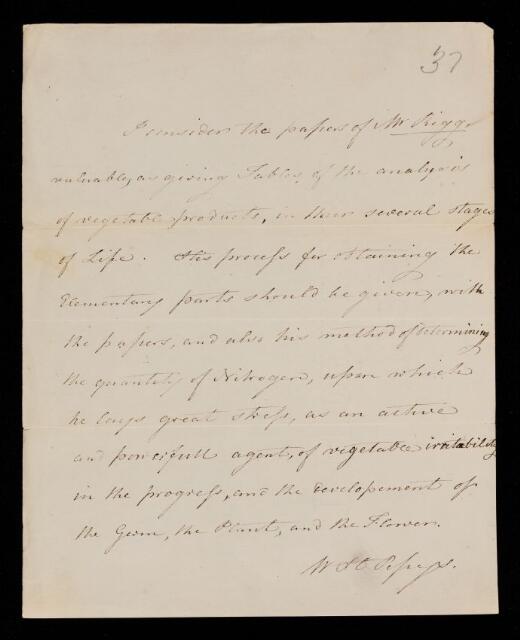 37
I consider the papers of Mr Rigg
valuable, as giving Tables, of the analysis
of vegetable products, in their several stages
of Life. His process for obtaining the
Elementary parts should be given, with
the papers, and also his method of determining
the quantity of Nitrogen, upon which
he lays great stress, as an active
and powerfull agent, of vegetable iritability
in the progress, and the developement of
the Germ, the Plant, and the Flower.
W H Pepys.